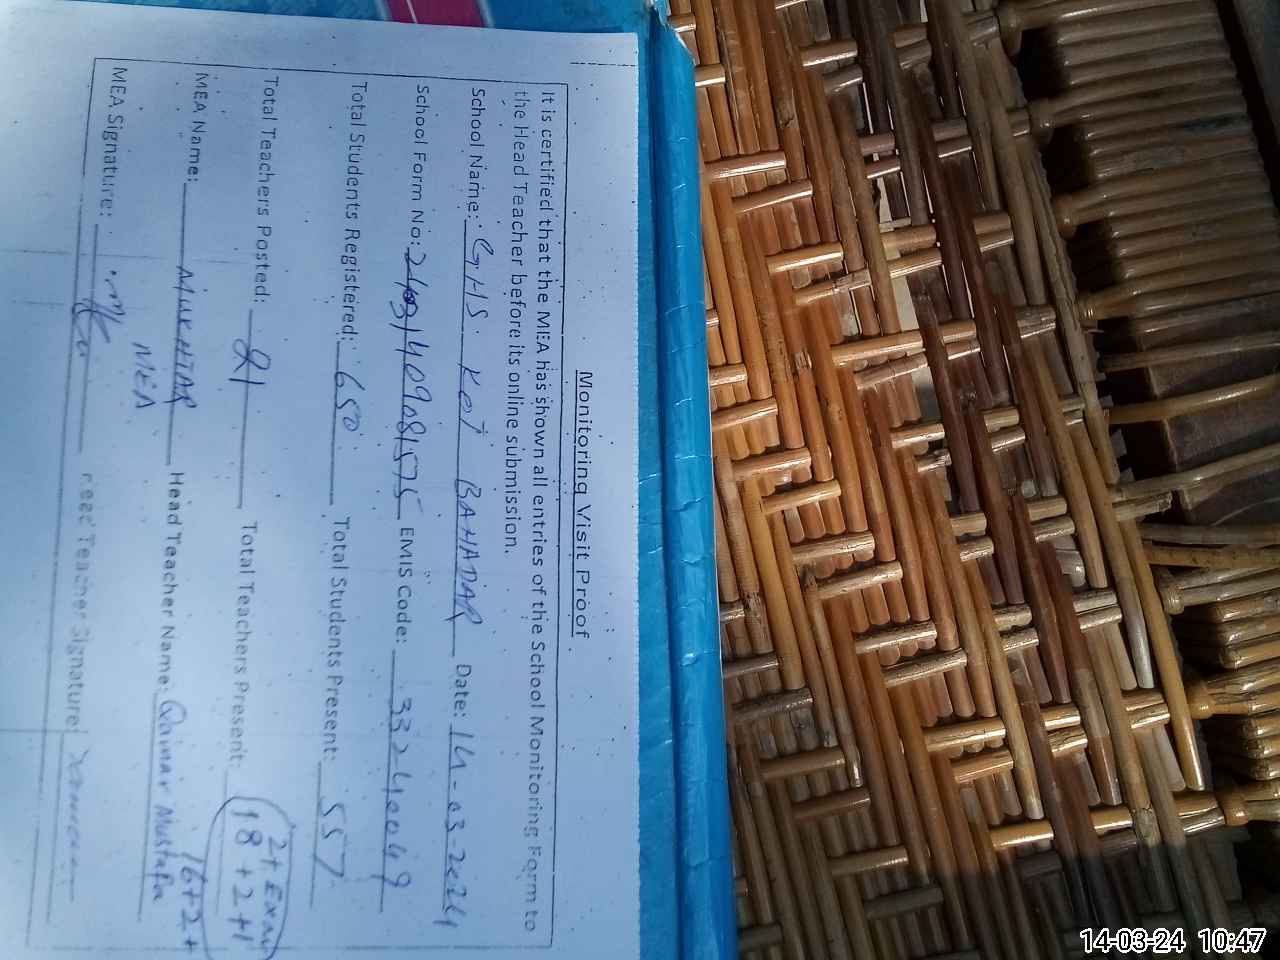 Monitoring Visit Proof
It is certified that the MEA has shown all entries of the School Monitoring Form to
the Head Teacher before its online submission.
School Name: GHS KOT BAHADAR Date: 14-03-2024
School Form No: EMIS Code: 33240049
Total Students Registered: 650 Total Students Present: 557
Total Teachers Posted: 21 Total Teachers Present: 18+2+1
2+ Exam
16+2+
MEA Name: MUKHTAR Head Teacher Name: Qamar Mustafa
MEA
MEA Signature: Head Teacher Signature:
14-03-24 10:47